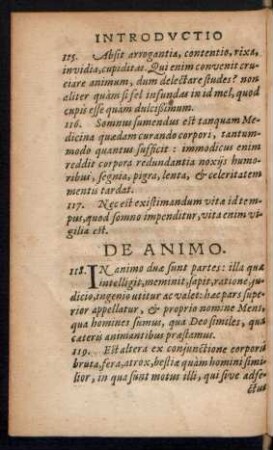 INTRODVCTIO
115. Absit arrogantia, contentio, rixa,
invidia, cupiditas. Qui enim convenit cru-
ciare animum, dum delectare studes? non
aliter quàm si fel infundas in id mel, quod
cupis esse quàm dulcissimum.
116. Somnus sumendus est tanquam Me-
dicina quædam curando corpori, tantum-
modo quantus sufficit: immodicus enim
reddit corpora redundantia noxijs humo-
ribus, segnia, pigra, lenta, & celeritatem
mentis tardat.
117. Nec est existimandum vita id tem-
pus, quod somno impenditur, vita enim vi-
gilia est.
DE ANIMO.
118. IN animo duæ sunt partes: illa quæ
intelligit, meminit, sapit, ratione, ju-
dicio, ingenio utitur ac valet: hæc pars supe-
rior appellatur, & proprio nomine Mens,
qua homines sumus, qua Deo similes, qua
cæteris animantibus præstamus.
119. Est altera ex conjunctione corporis
bruta, fera, atrox, bestiæ quàm homini simi-
lior, in qua sunt motus illi, qui sive adfe-
ctus